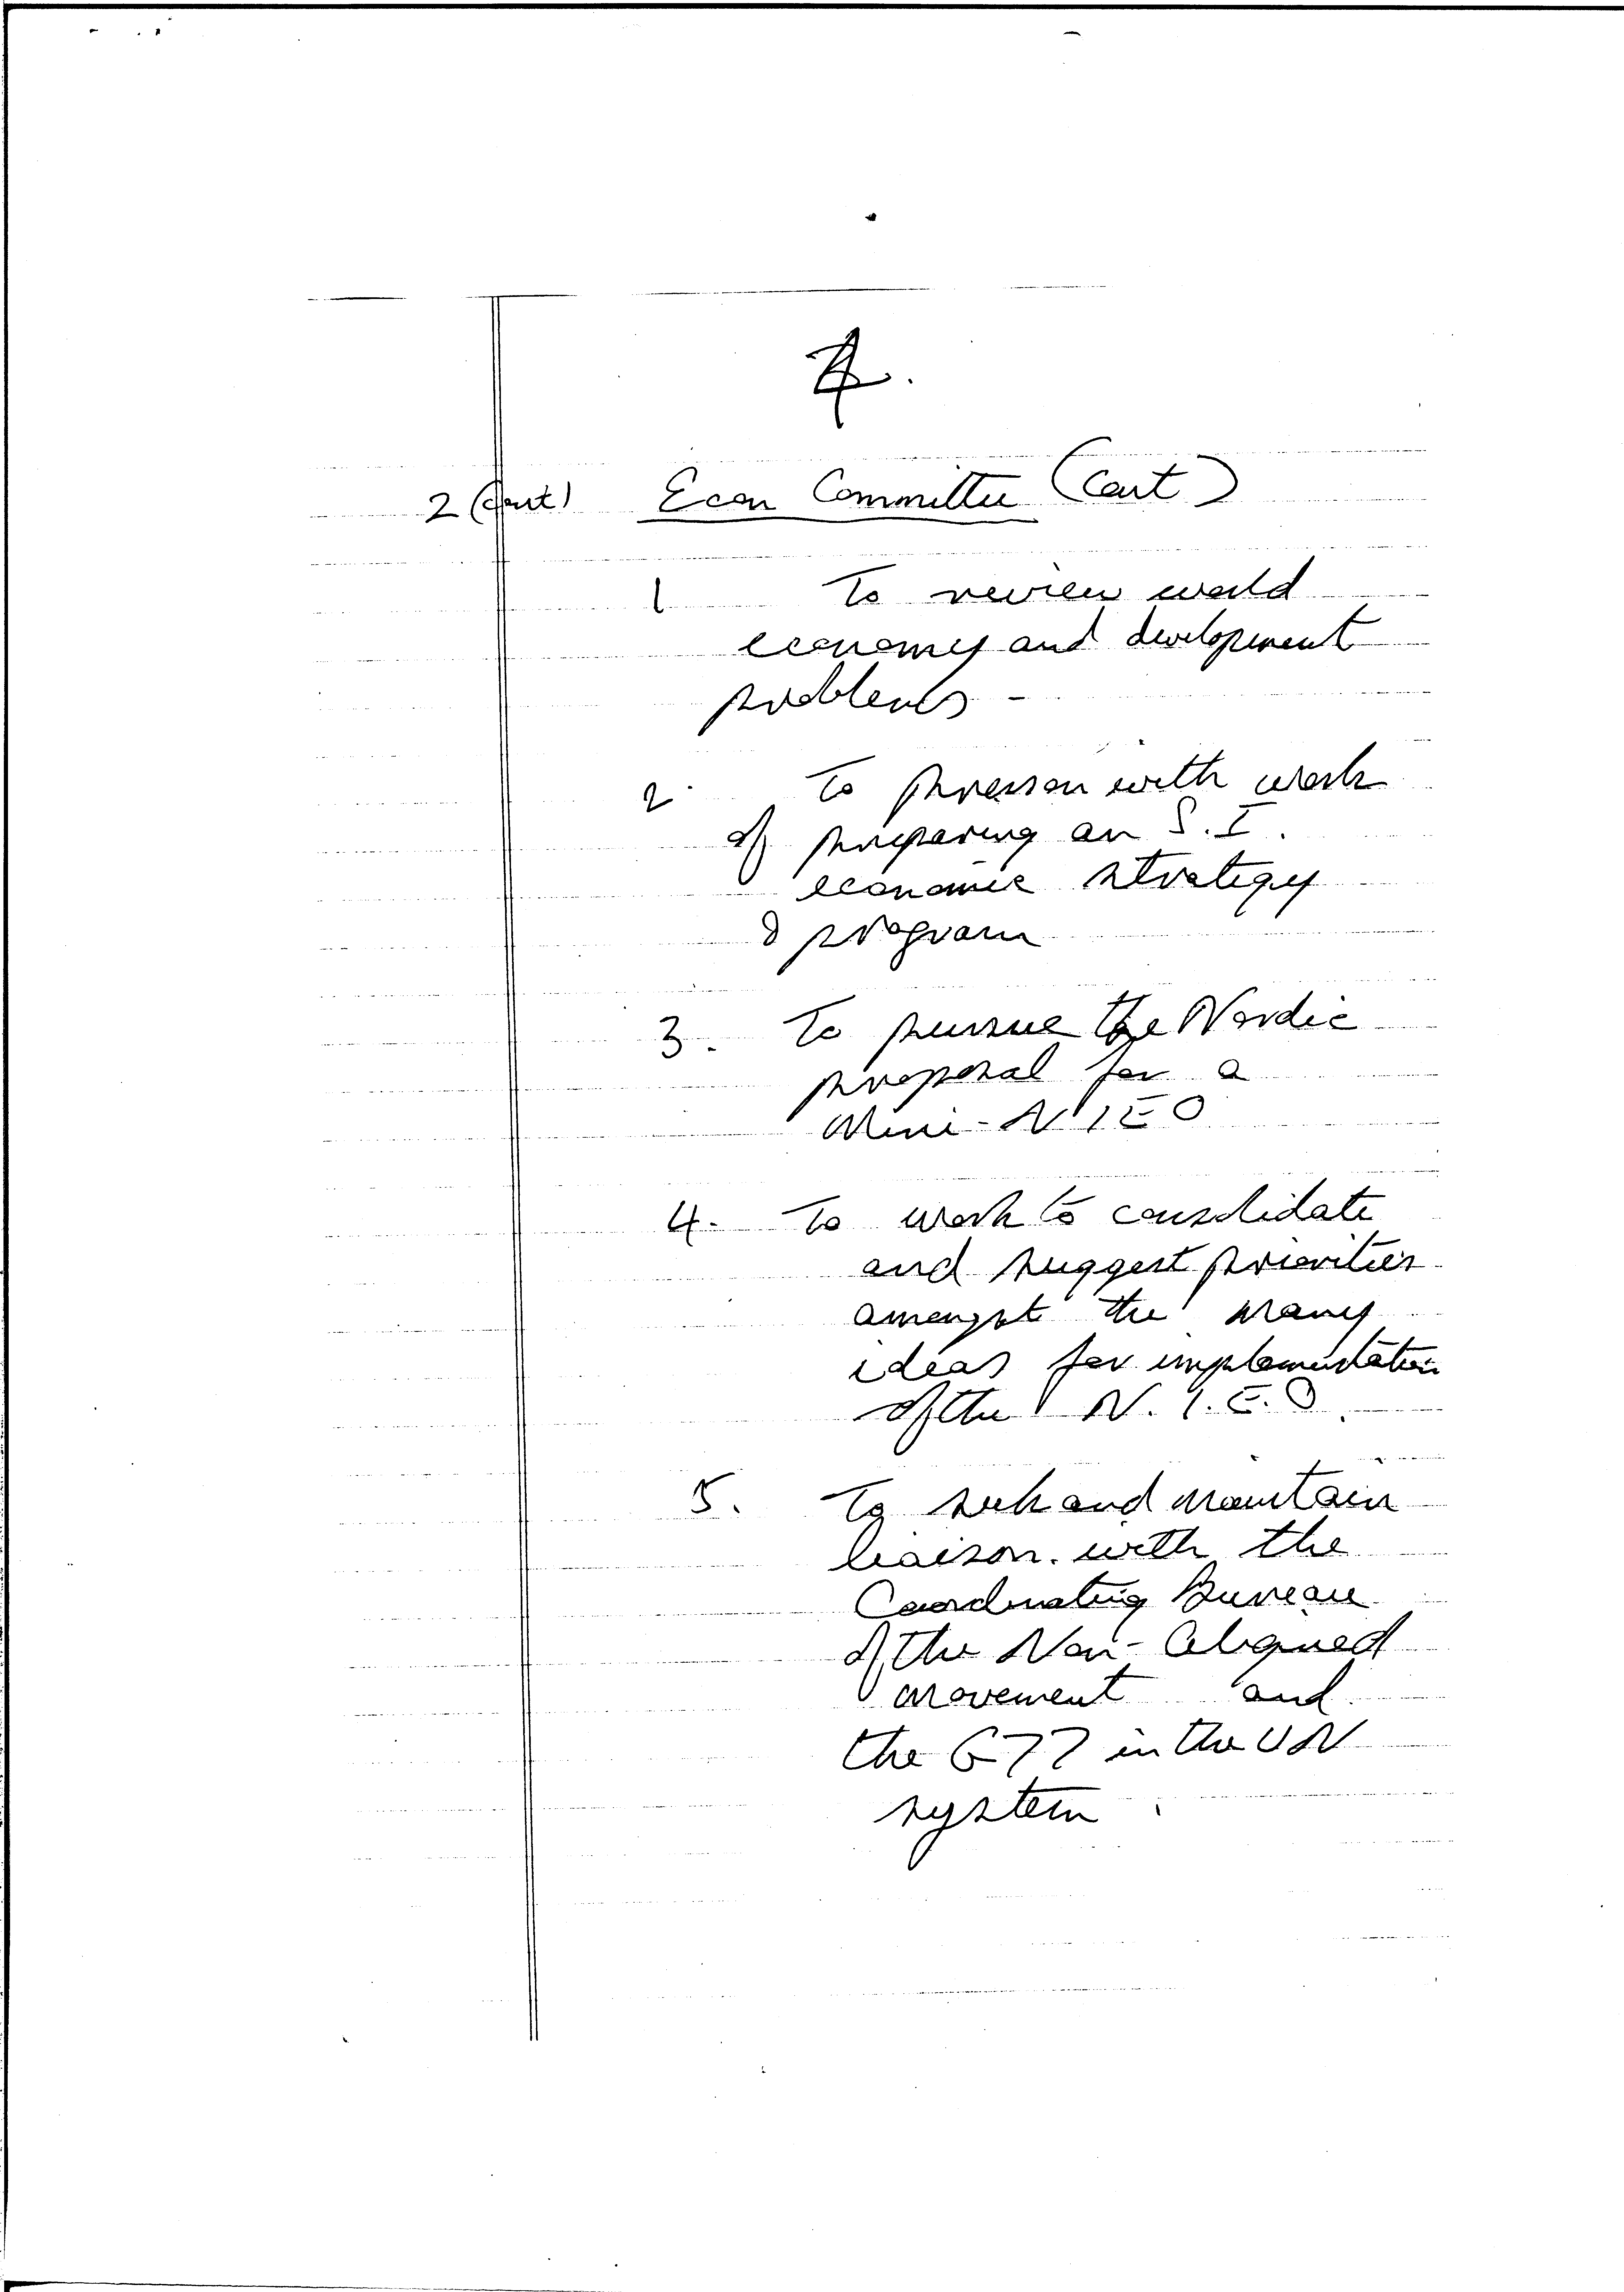 2 (Cont) Econ Committee (Cont)
1 To review world
economy and development
problems -
2. To press on with work
of preparing an S.I.
economic strategy
& program
3. To pursue the Nordic
proposal for a
Mini-NIEO
4. To work to consolidate
and suggest priorities
amongst the many
ideas for implementation
of the N.I.E.O.
5. To seek and maintain
liaison with the
Coordinating Bureau
of the Non-Aligned
movement and
the G77 in the UN
system.